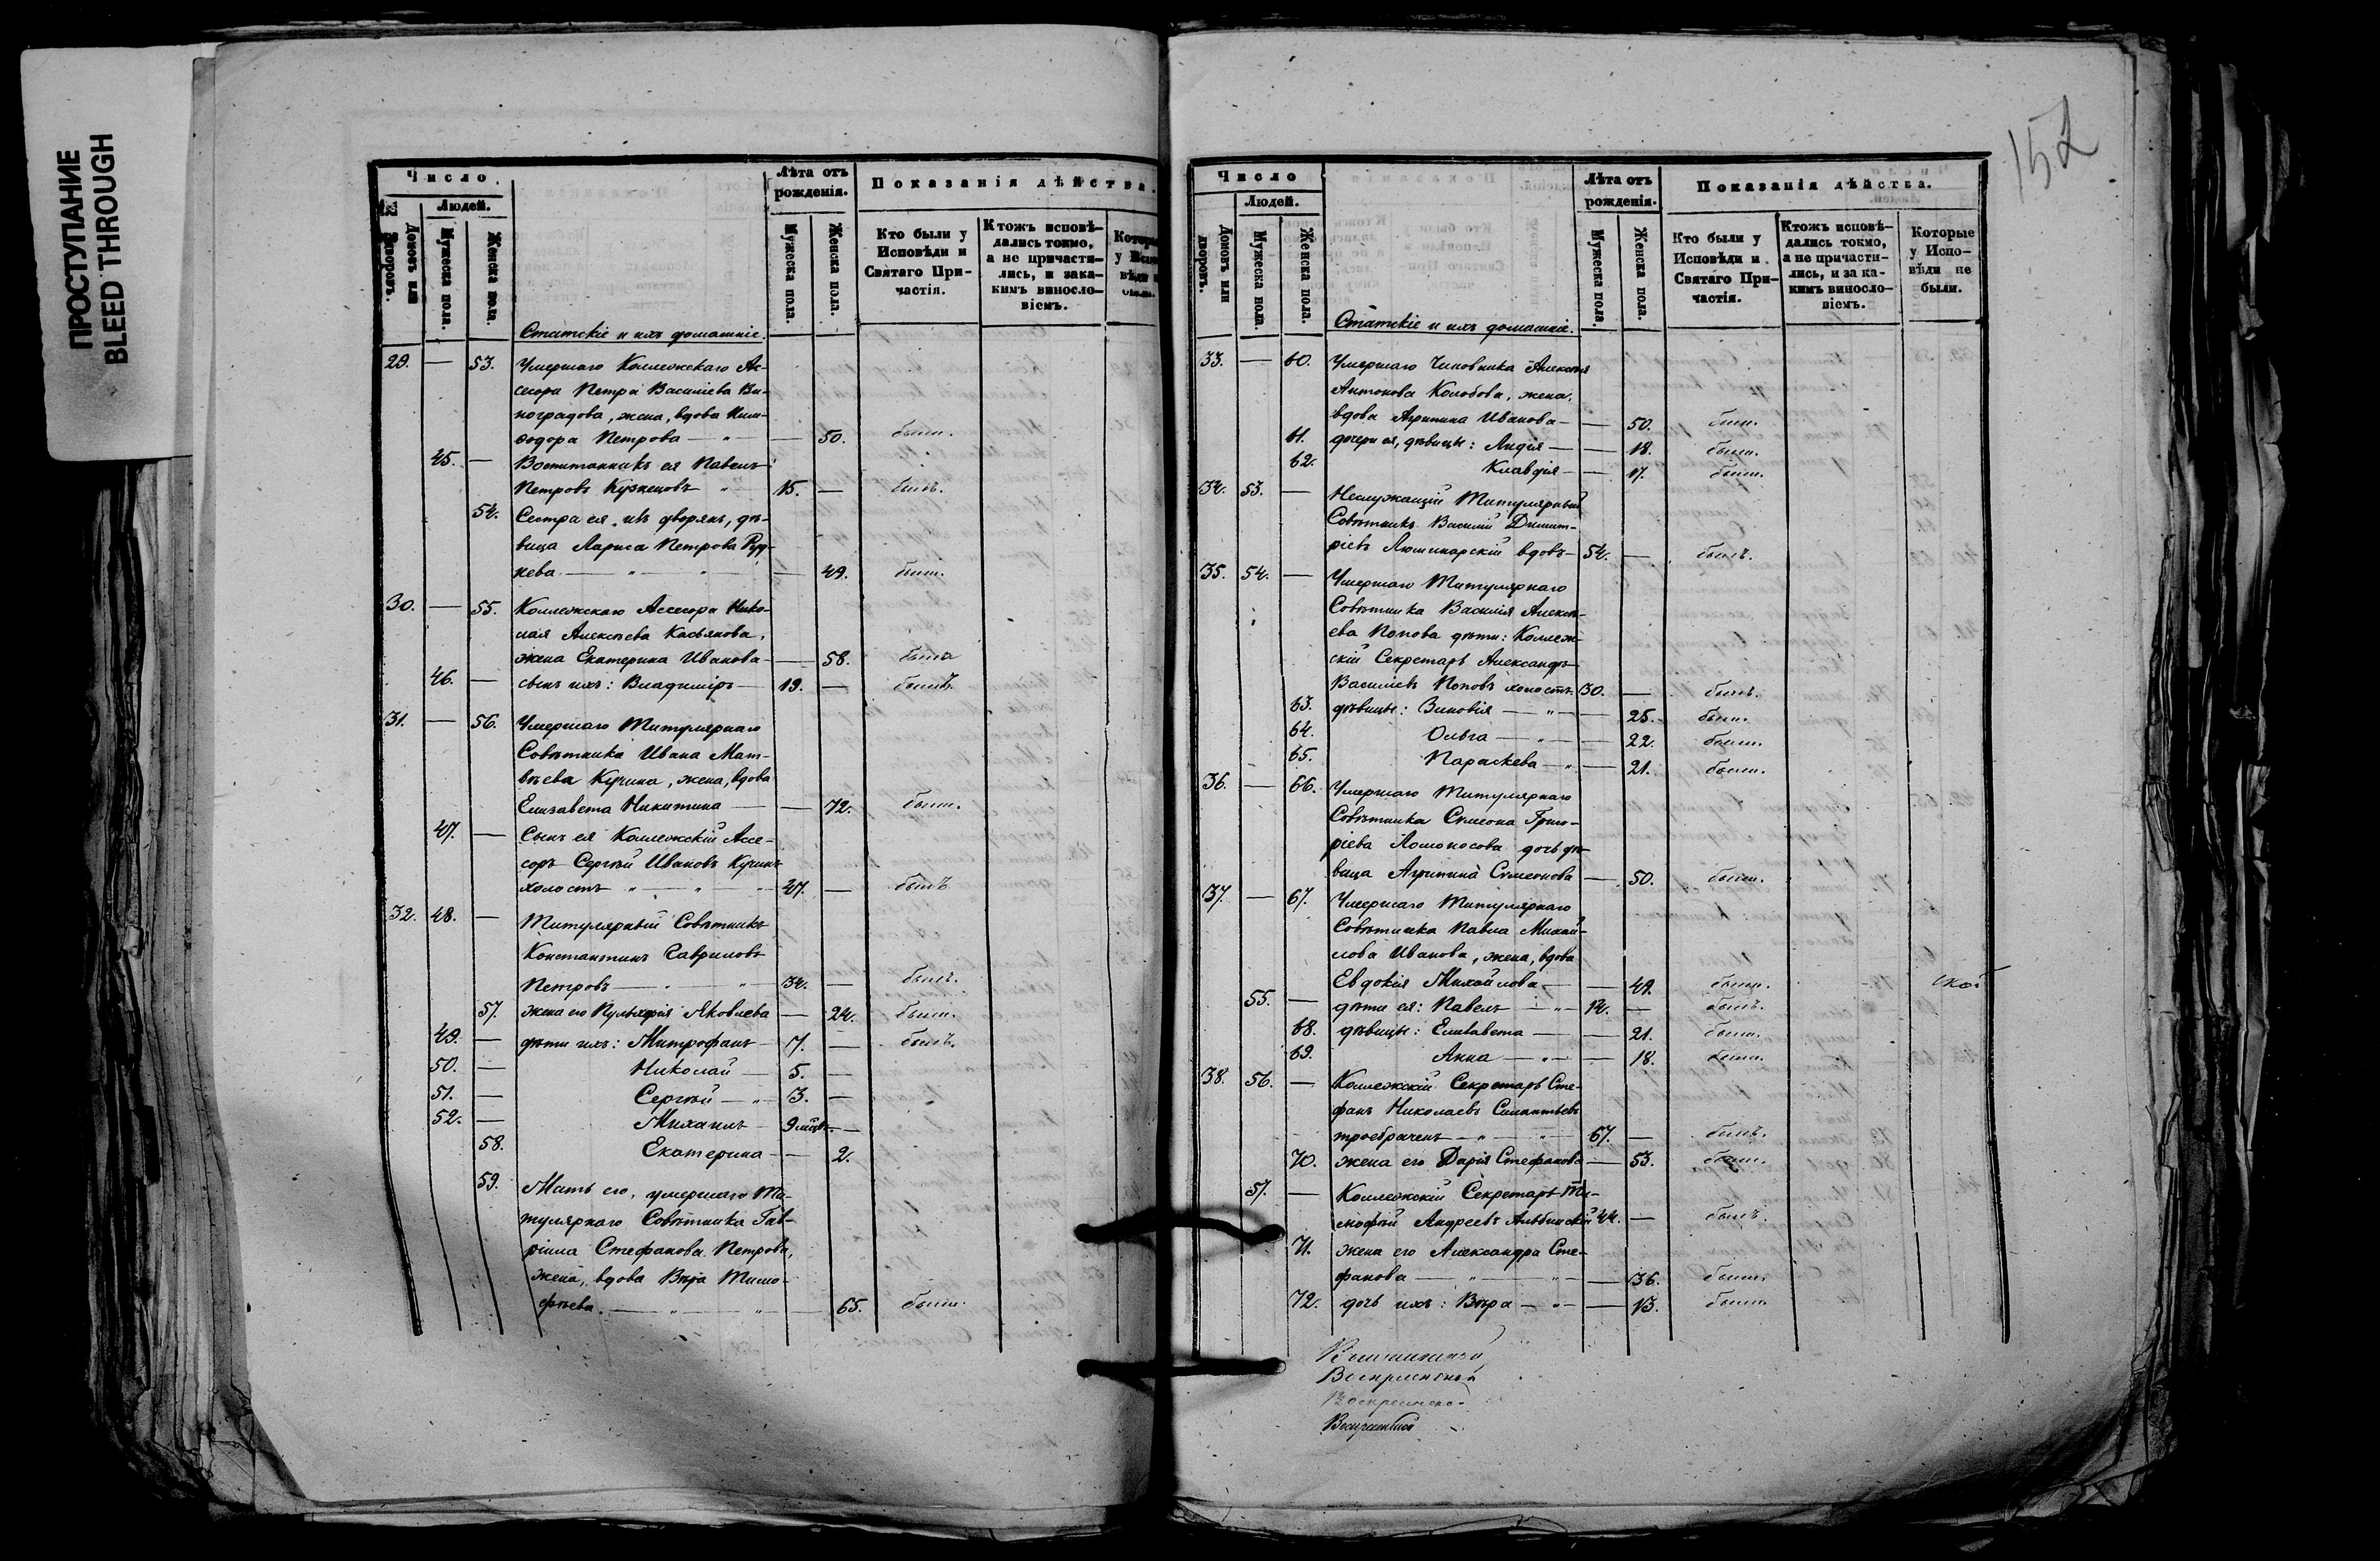 ПРОСТУПАНИЕ
BLEED THROUGH
Число.
Людей.
Домовъ или дворовъ.
Мужеска пола.
Женска пола.
Лѣта отъ рожденія.
Мужеска пола.
Женска пола.
Показанія дѣйства.
Кто были у Исповѣди и Святаго Причастія.
Ктожъ исповѣдались токмо, а не причастились, и за какимъ винословіемъ.
Статскіе и ихъ домашніе.
29. — 53. Умершаго Коллежскаго Ас-
сесора Петра Василіева Ви-
ноградова, жена, вдова
Петрова — „ — — 50. была.
45. — Воспитанникъ ея Павелъ
Петровъ Кузнецовъ „ 15. — былъ.
54. Сестра ея, изъ дворянъ, дѣ-
вица Лариса Петрова Руд-
нева — „ — „ — 49. была.
30. — 55. Коллежскаго Ассесора Нико-
лая Алексѣева Касьянова,
жена Екатерина Иванова — — 58. была
46. — сынъ ихъ: Владиміръ — 19. — былъ.
31. — 56. Умершаго Титулярнаго
Совѣтника Ивана Мат-
вѣева Кучина, жена, вдова
Елизавета Никитина — — 72. была.
47. — Сынъ ея Коллежскій Ассе-
соръ Сергѣй Ивановъ Кучинъ
холостъ „ — „ — „ 47. — былъ
32. 48. — Титулярный Совѣтникъ
Константинъ Гавриловъ
Петровъ — „ — „ — 34. — былъ.
57. жена его Пульхерія Яковлева — 24. была.
49. — дѣти ихъ: Митрофанъ — 7. — былъ.
50. — Николай — 5. —
51. — Сергѣй — „ — 3. —
52. — Михаилъ — 9 мѣцъ. —
58. Екатерина — — 2.
59. Мать его, умершаго Ти-
тулярнаго Совѣтника Гав-
ріила Стефанова Петрова,
жена, вдова Вѣра Тимо-
фѣева. — „ — „ — 65. была.
152
Число
Людей.
Домовъ или дворовъ.
Мужеска пола.
Женска пола.
Лѣта отъ рожденія.
Мужеска пола.
Женска пола.
Показанія дѣйства.
Кто были у Исповѣди и Святаго Причастія.
Ктожъ исповѣдались токмо, а не причастились, и за какимъ винословіемъ.
Которые у Исповѣди не были.
Статскіе и ихъ домашніе.
33. — 60. Умершаго Чиновника Алексѣя
Антонова Колобова, жена,
вдова Агрипина Иванова — — 50. была.
61. дочери ея, дѣвицы: Лидія — — 18. была.
62. Клавдія — — 17. была.
34. 53. — Неслужащій Титулярный
Совѣтникъ Василій Димит-
ріевъ вдовъ — 54. — былъ.
35. 54. — Умершаго Титулярнаго
Совѣтника Василія Алексѣ-
ева Попова дѣти: Коллеж-
скій Секретарь Александръ
Василіевъ Поповъ холостъ. 30. — былъ.
63. дѣвицы: Зиновія — „ — — 25. была.
64. Ольга — „ — — 22. была.
65. Параскева — „ — 21. была.
36. — 66. Умершаго Титулярнаго
Совѣтника Сѵмеона Григо-
ріева Ломоносова дочь дѣ-
вица Агрипина Сѵмеонова — 50. была.
37. — 67. Умершаго Титулярнаго
Совѣтника Павла Михай-
лова Иванова, жена, вдова
Евдокія Михайлова — — 49. была.
55. — дѣти ея: Павелъ — „ — 14. — былъ.
68. дѣвицы: Елизавета — — 21. была.
69. Анна — „ — — 18. была.
38. 56. — Коллежскій Секретарь Сте-
фанъ Николаевъ Силантьевъ
троебраченъ — „ — „ — 67. — былъ.
70. жена его Дарія Стефанова — 53. была.
57. — Коллежскій Секретарь Ти-
мофѣй Андреевъ 44. — былъ.
71. жена его Александра Сте-
фанова — „ — „ — — 36. была.
72. дочь ихъ: Вѣра — „ — — 13. была.
Воскресенской